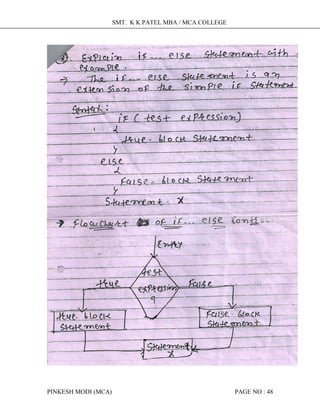 SMT. K K PATEL MBA / MCA COLLEGE
Explain if .... else statement with
example.
→ The if ... else statement is an
extension of the simple if statement
Syntax:
if ( test expression)
{
true - block statement
}
else
{
False - block statement
}
Statement - x
→ Flow chart of if ... else
Entry
test
expression
?
true
False
true block
statement
False block
statement
Statement
x
PINKESH MODI (MCA) PAGE NO : 48